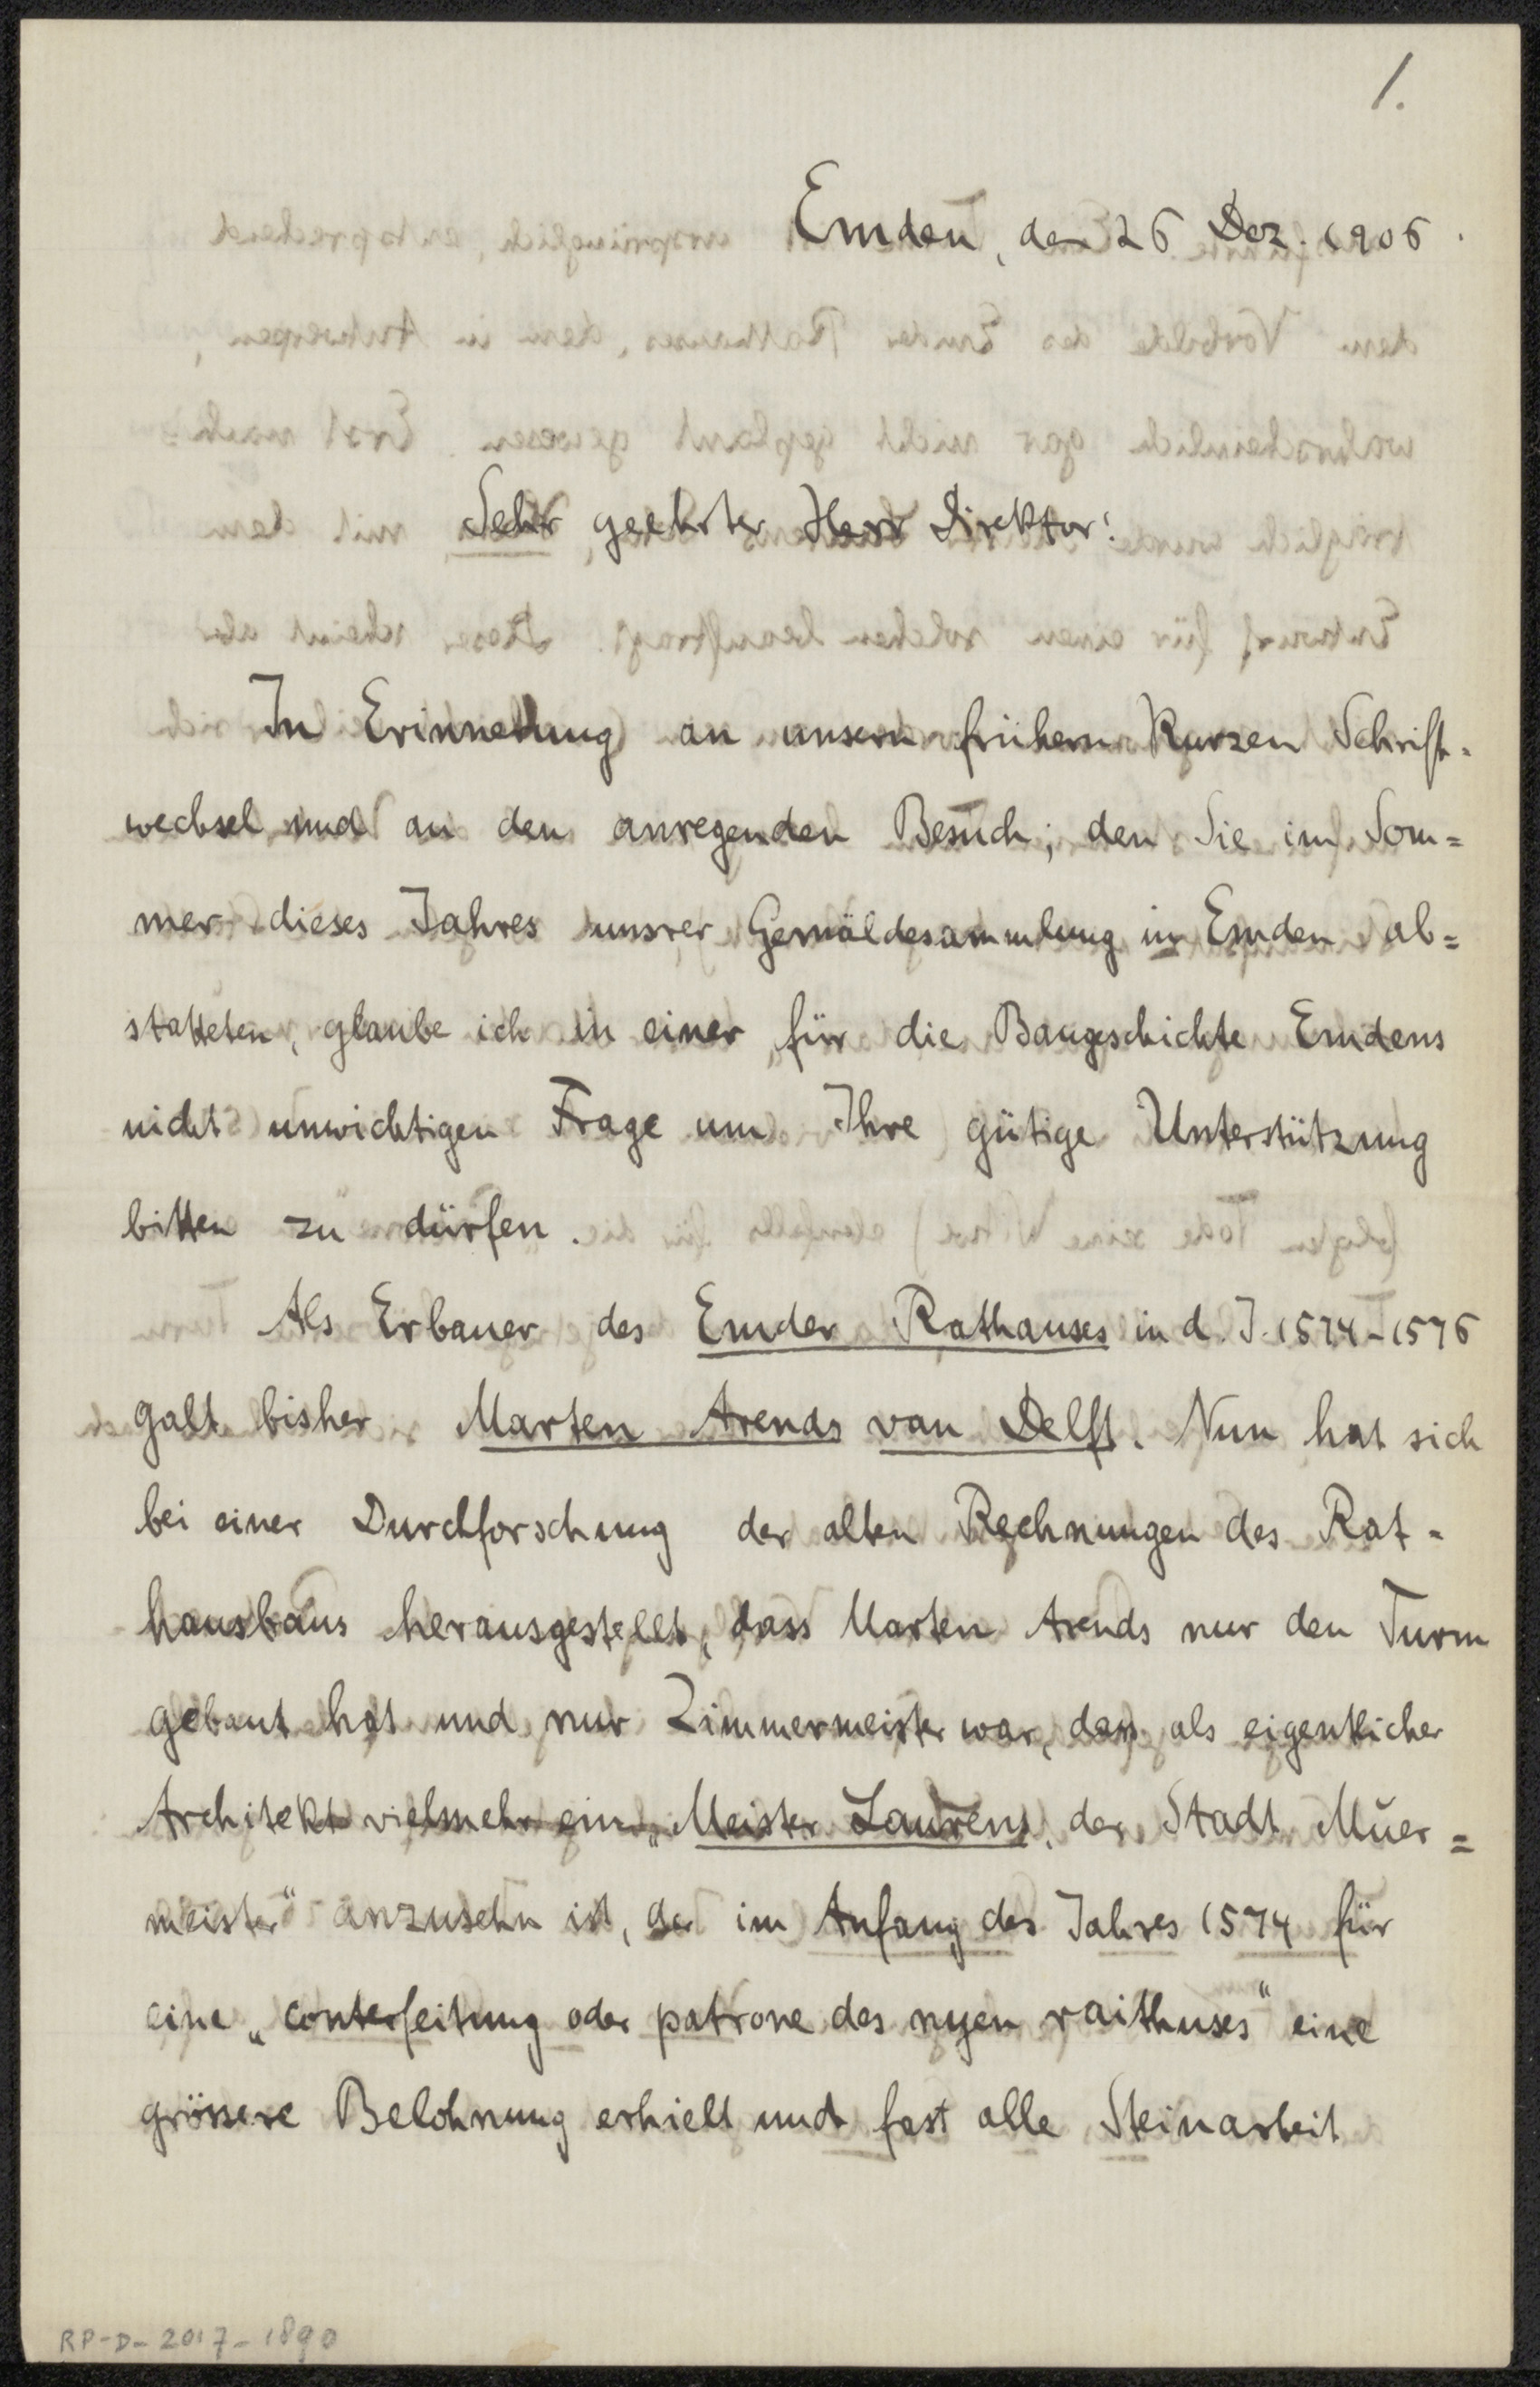 1.
Emden, den 26 Dez. 1906.
Sehr geehrter Herr Direktor!
In Erinnerung an unsern frühern kurzen Schrift-
wechsel und an den anregenden Besuch, den Sie im Som=
mer dieses Jahres unsrer Gemäldesammlung in Emden ab=
statteten, glaube ich in einer für die Baugeschichte Emdens
nicht unwichtigen Frage um Ihre gütige Unterstützung
bitten zu dürfen.
Als Erbauer des Emder Rathauses in d. J. 1574-1576
galt bisher Marten Arends van Delft. Nun hat sich
bei einer Durchforschung der alten Rechnungen des Rat-
hausbaus herausgestellt, dass Marten Arends nur den Turm
gebaut hat und nur Zimmermeister war, dass als eigentlicher
Architekt vielmehr ein „Meister Laurens, der Stadt Mŭer=
meister“ anzusehn ist, der im Anfang des Jahres 1574 für
eine „conterfeitung oder patrone des nyen raithuses“ eine
grössere Belohnung erhielt und fast alle Steinarbeit
RP-D-2017-1890